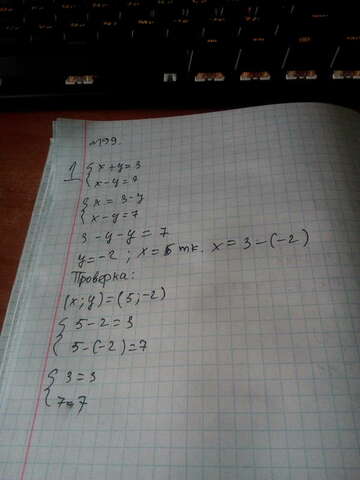 №199.
1 { x+y=3
x-y=7
{ x = 3-y
x-y=7
3-y-y=7
y=-2; x=5 т.к. x=3-(-2)
Проверка:
(x;y)=(5;-2)
{ 5-2=3
5-(-2)=7
{ 3=3
7=7